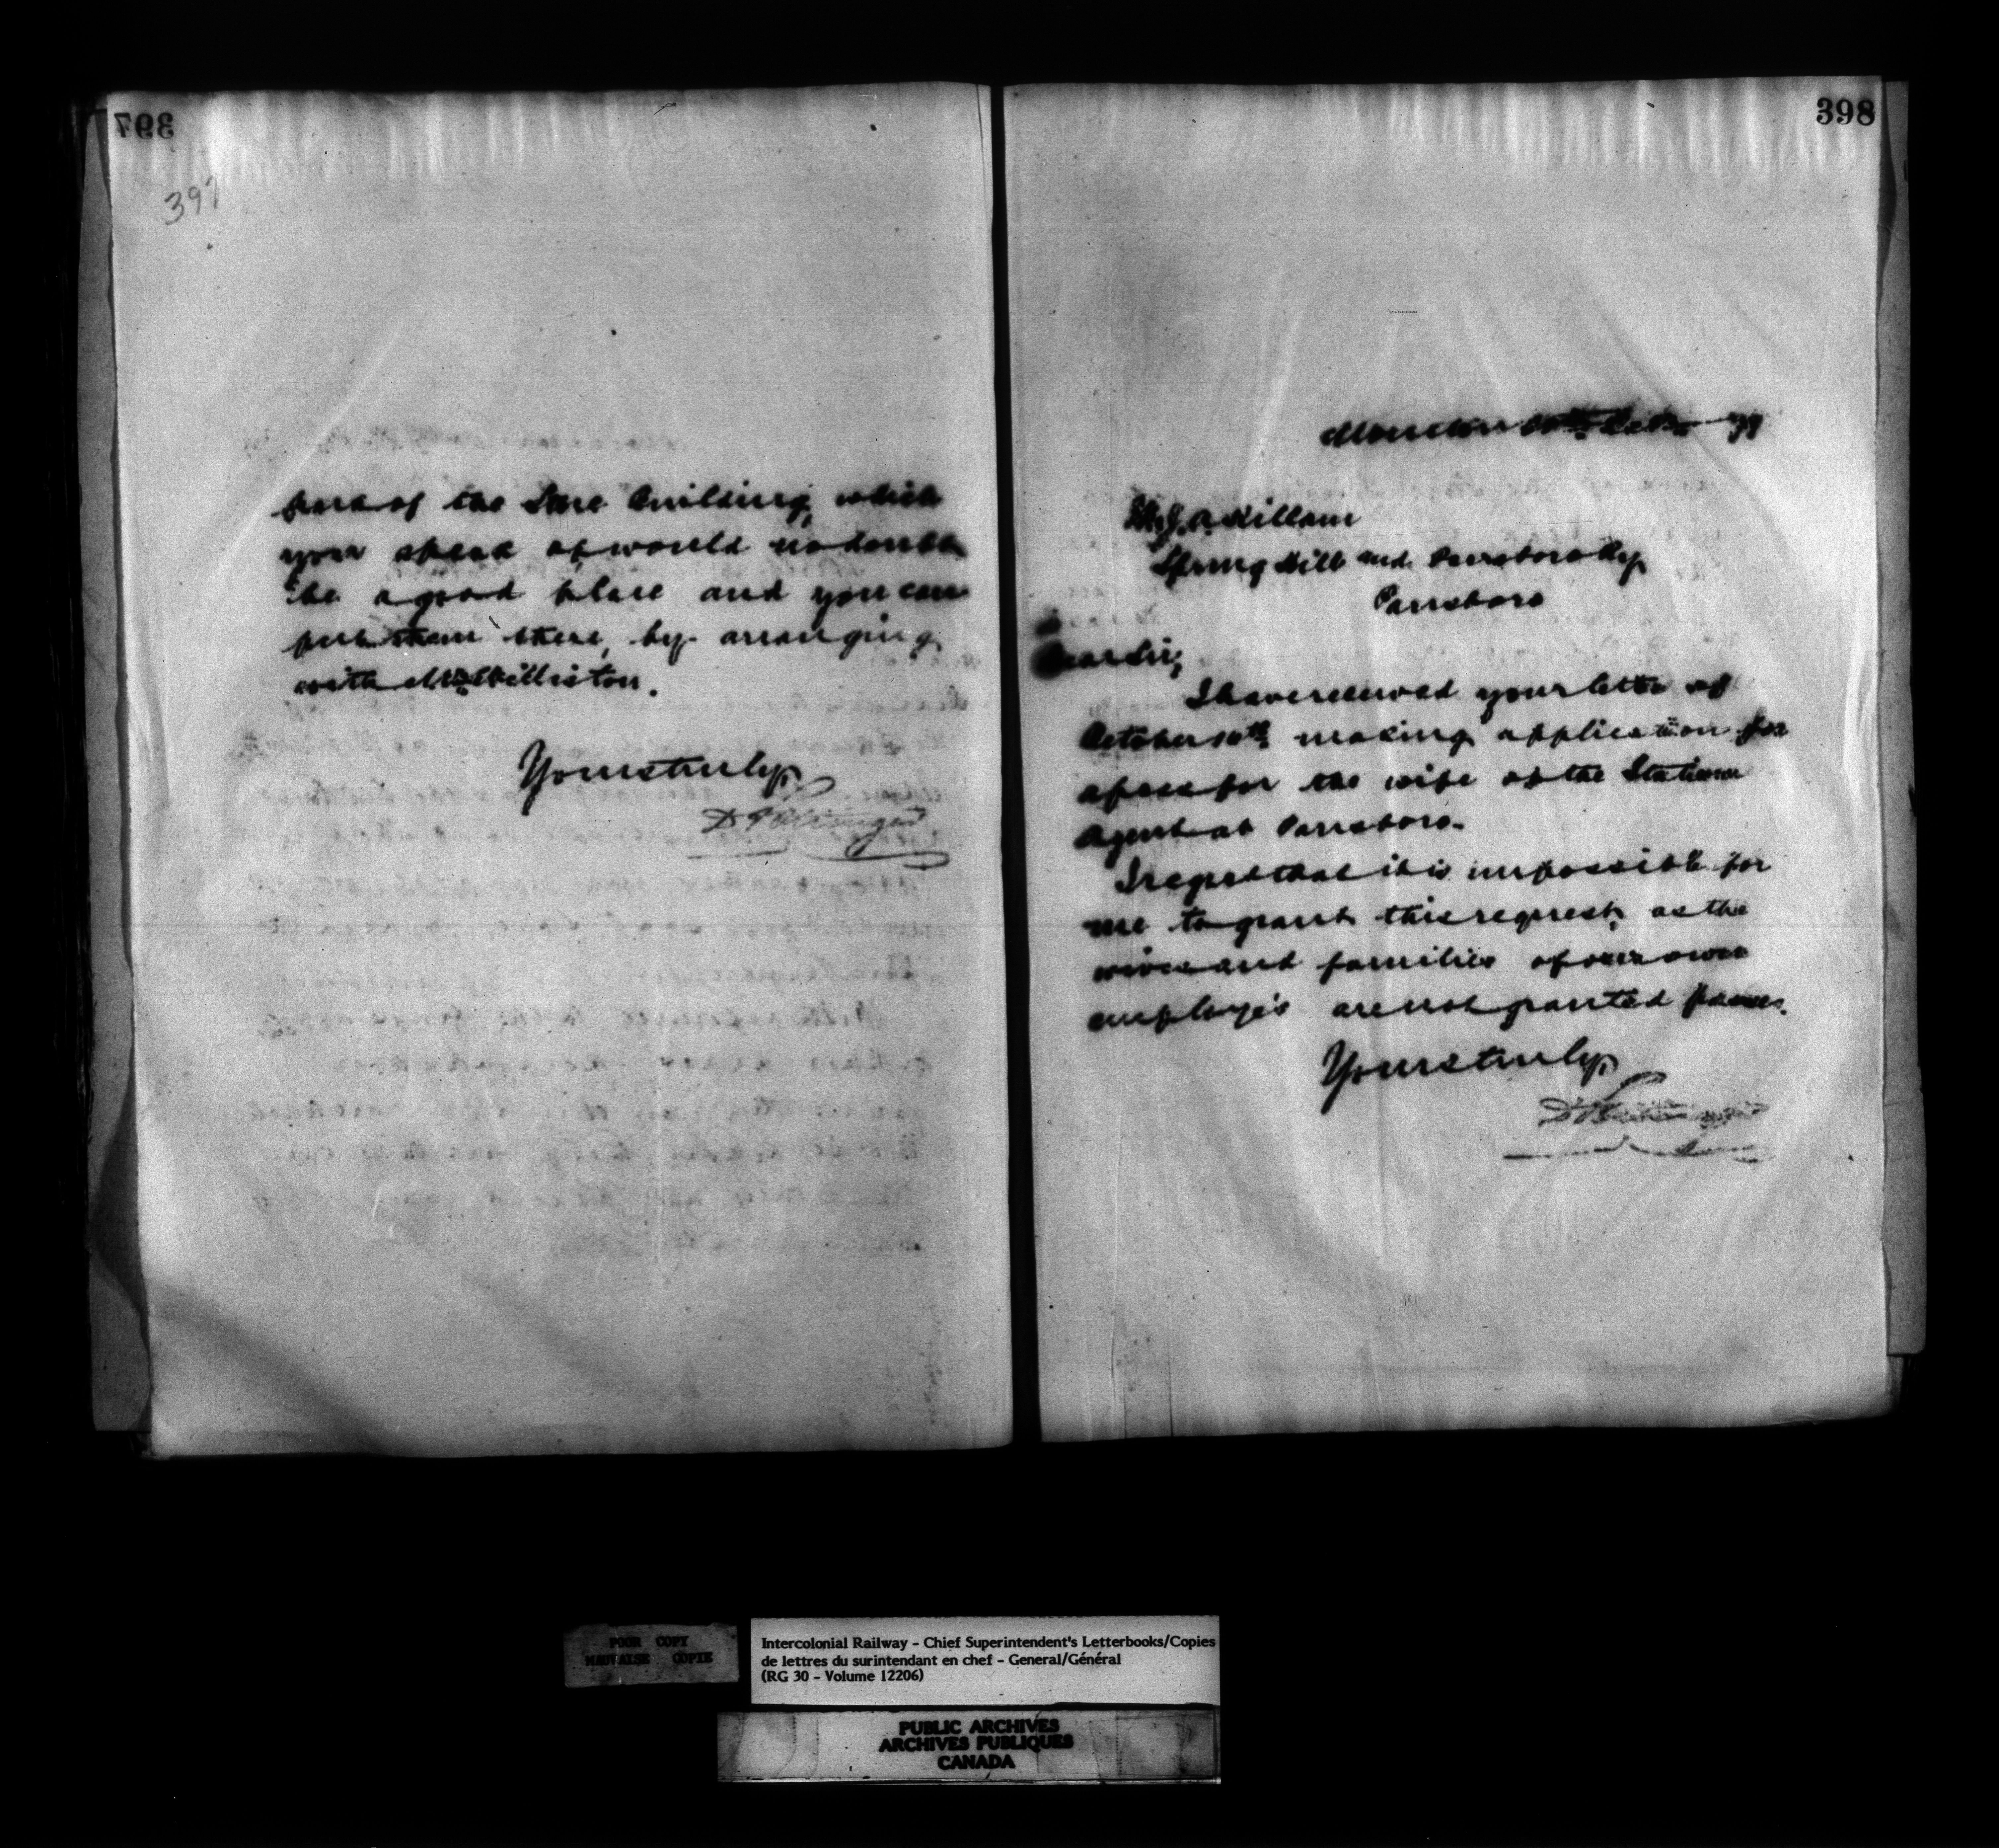 397
397
part of the Store building, which
you speak of would no doubt
be a good place and you can
put them there, by arranging
with Mr. Williston.
Yours truly,
D Pottinger
398
Moncton Oct 79
J. A. Killam
Spring Hill and Parrsboro Ry
Parrsboro
Dear Sir,
I have received your letter of
October 10th making application for
a pass for the wife of the Station
Agent at Parrsboro.
I regret that it is impossible for
me to grant this request, as the
wives and families of our own
employés are not granted passes.
Yours truly,
D Pottinger
POOR COPY
MAUVAISE COPIE
Intercolonial Railway - Chief Superintendent's Letterbooks/Copies
de lettres du surintendant en chef - General/Général
(RG 30 - Volume 12206)
PUBLIC ARCHIVES
ARCHIVES PUBLIQUES
CANADA